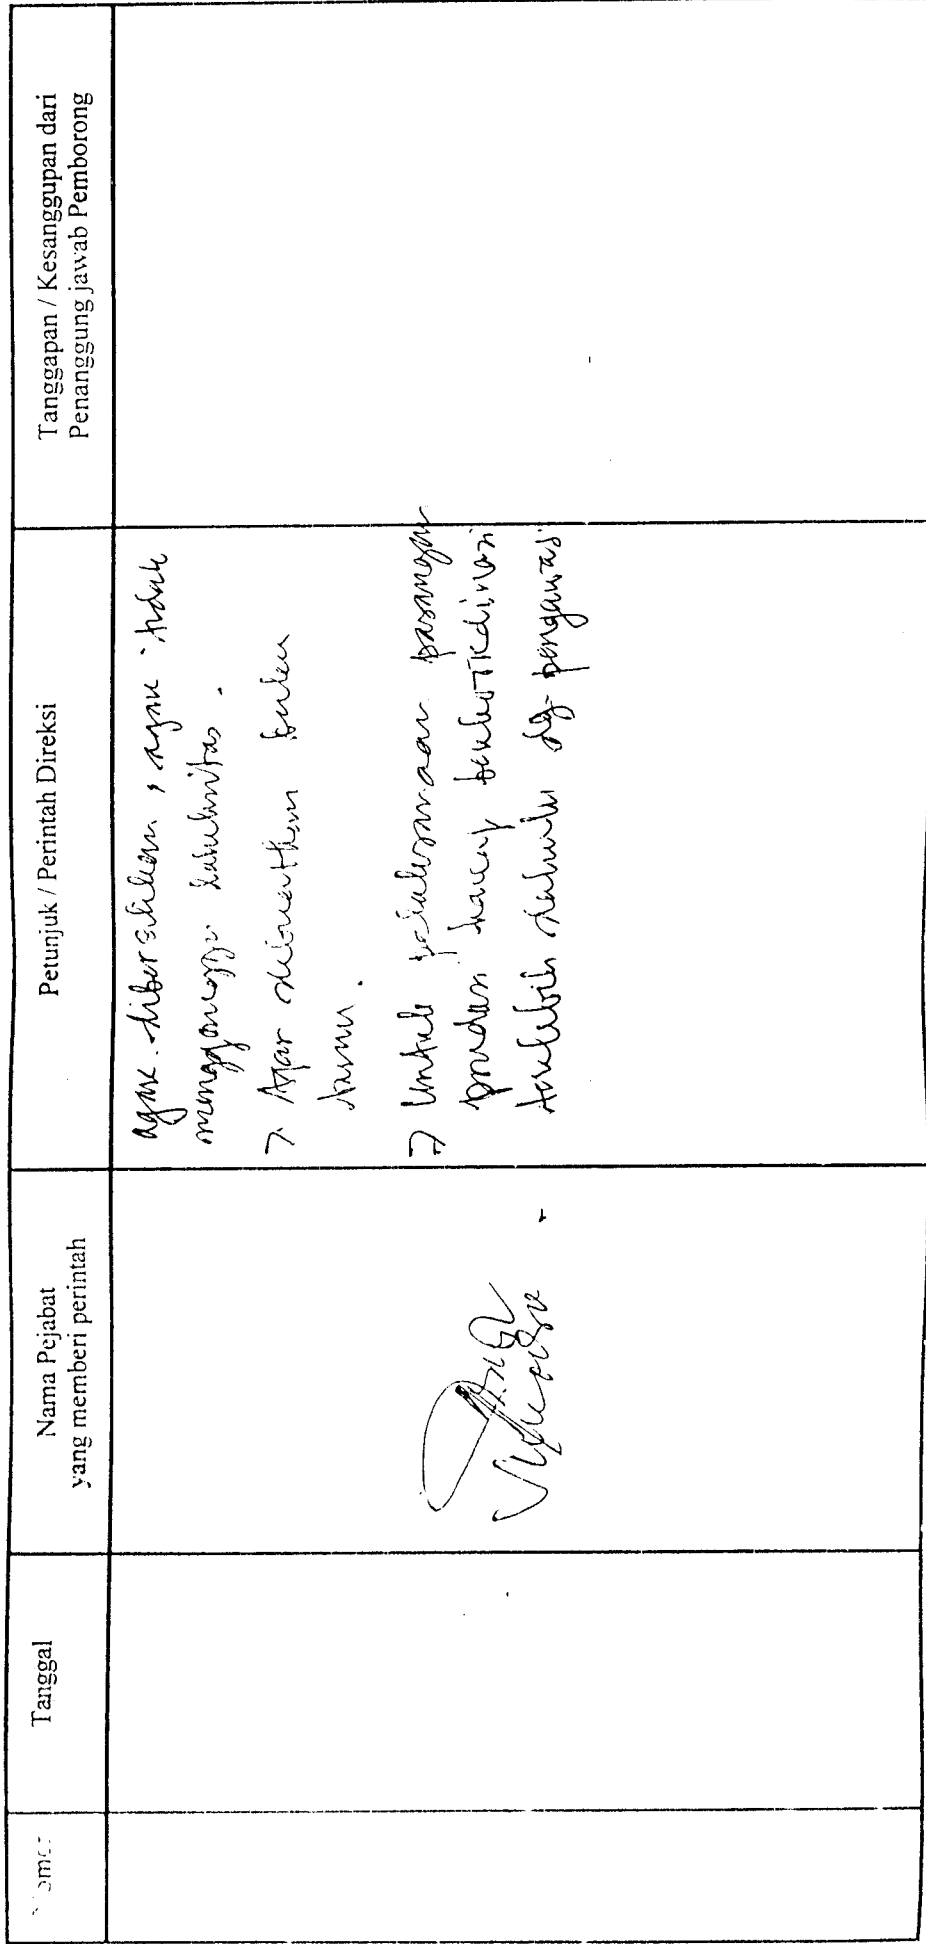 Nomor
Tanggal
Nama Pejabat
yang memberi perintah
Petunjuk / Perintah Direksi
Tanggapan / Kesanggupan dari
Penanggung jawab Pemborong
agar dibersihkan, agar tidak
mengganggu
> Agar dibuatkan buku
tamu.
> Untuk pelaksanaan pasangan
harap berkoordinasi
terlebih dahulu dg pengawas